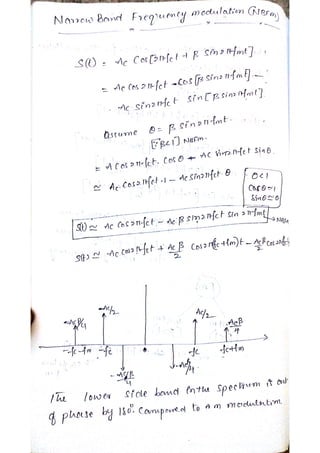 Narrow Band Frequency modulation (NBFM)
S(t) = Ac Cos[2πfct + β sin2πfmt].
= Ac Cos2πfct - Cos[β sin2πfmt] -
Ac sin2πfct sin[β sin2πfmt]
Assume θ = β sin2πfmt.
[∵β<1] NBFM.
= A Cos2πfct. Cosθ - Ac sin2πfct sinθ.
≃ Ac Cos2πfct . 1 - Ac sin2πfct θ
θ<1
Cosθ≃1
Sinθ≃θ
S(t) ≃ Ac Cos2πfct - Ac β sin2πfct sin2πfmt → NBFM
S(t) ≃ Ac Cos2πfct + Acβ/2 Cos2π(fc+fm)t - Acβ/2 Cos2π(fc
Acβ/4 Ac/2 Ac/2 Acβ/4
-fc-fm -fc 0 fc fc+fm
-Acβ/4 -Acβ/4
The lower side band in the spectrum is out
of phase by 180°. Compared to Am modulation.